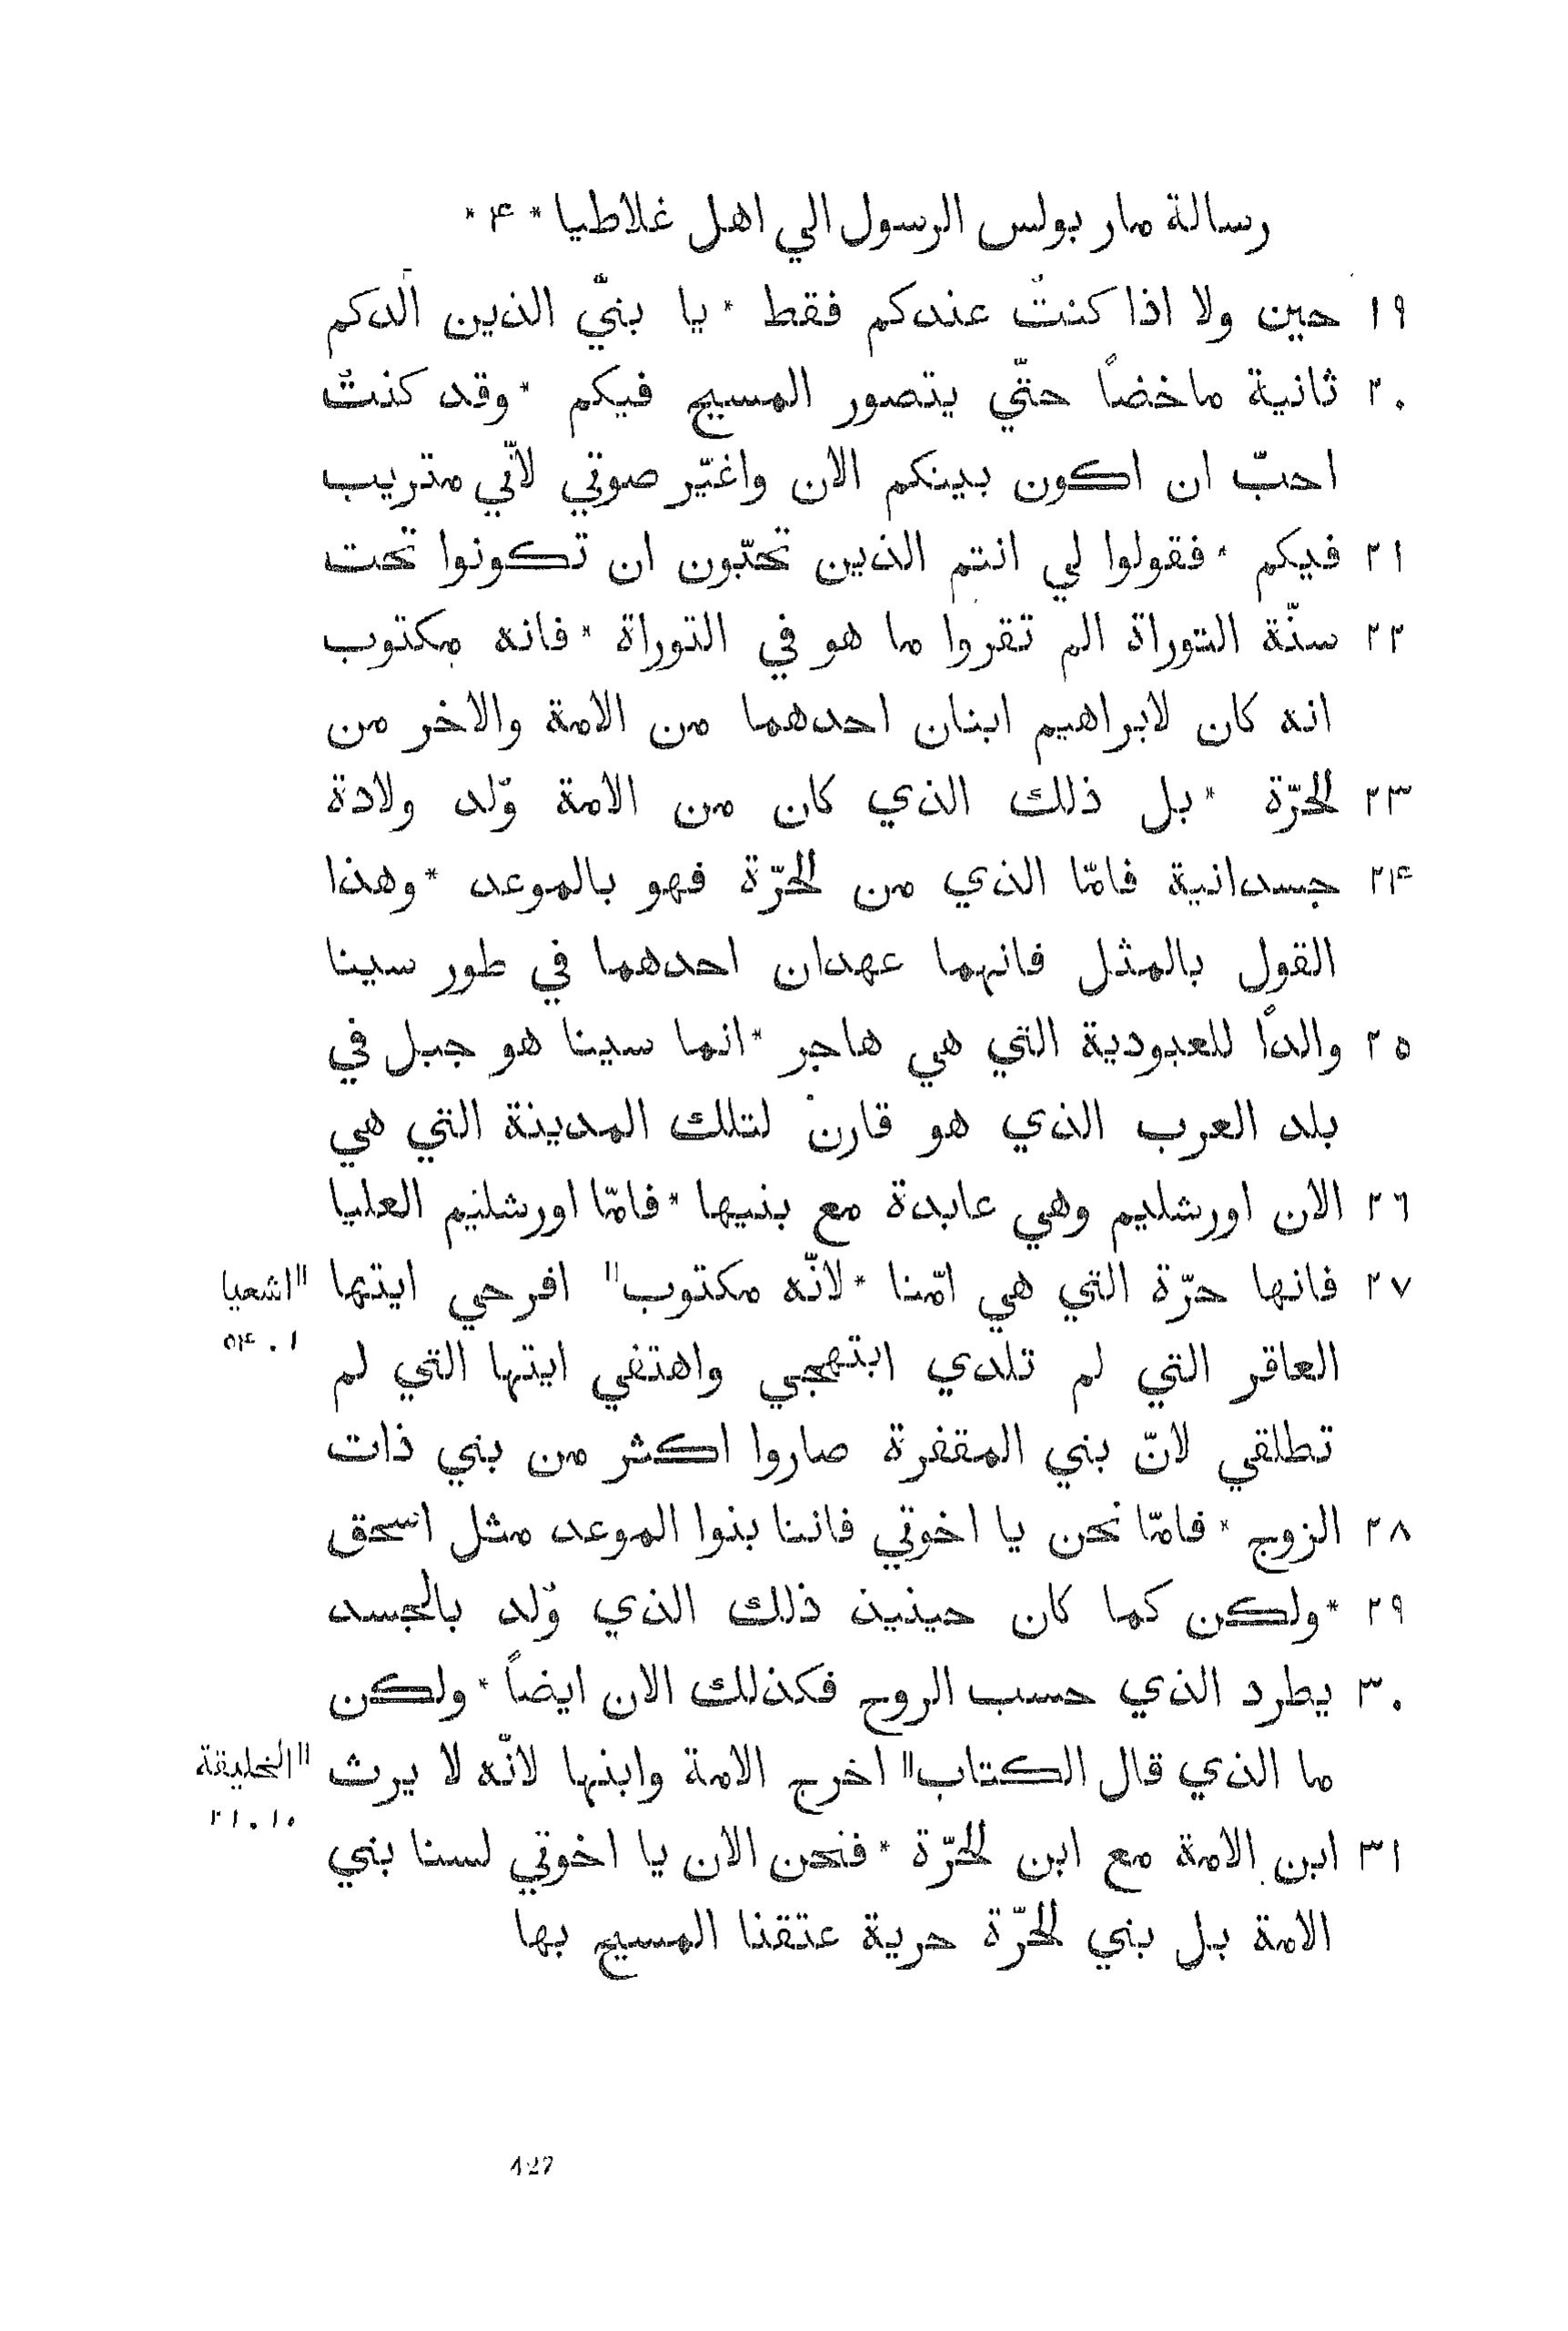 رسالة مار بولس الرسول الي اهل غلاطيا * ۴ *
١٩ حين ولا اذا كنتُ عندكم فقط * يا بنيَّ الذين آلدكم
٢٠ ثانية ماخضاً حتّي يتصور المسيح فيكم * وقد كنتُ
احبّ ان اكون بينكم الان واغيّر صوتي لانّي متريب
٢١ فيكم * فقولوا لي انتم الذين تحبّون ان تكونوا تحت
٢٢ سنّة التوراة الم تقروا ما هو في التوراة * فانه مكتوب
انه كان لابراهيم ابنان احدهما من الامة والاخر من
٢٣ الحرّة * بل ذلك الذي كان من الامة وُلد ولادة
٢۴ جسدانية فامّا الذي من الحرّة فهو بالموعد * وهذا
القول بالمثل فانهما عهدان احدهما في طور سينا
٢٥ والداً للعبودية التي هي هاجر * انما سينا هو جبل في
بلد العرب الذي هو قارن لتلك المدينة التي هي
٢٦ الان اورشليم وهي عابدة مع بنيها * فامّا اورشليم العليا
٢٧ فانها حرّة التي هي امّنا * لانّه مكتوب" افرحي ايتها
"اشعيا
٥۴.١
العاقر التي لم تلدي ابتهجي واهتفي ايتها التي لم
تطلقي لانّ بني المقفرة صاروا اكثر من بني ذات
٢٨ الزوج * فامّا نحن يا اخوتي فاننا بنوا الموعد مثل اسحق
٢٩ * ولكن كما كان حينين ذلك الذي وُلد بالجسد
٣٠ يطرد الذي حسب الروح فكذلك الان ايضاً * ولكن
ما الذي قال الكتاب" اخرج الامة وابنها لانّه لا يرث
"الخليقة
٢١.١٠
٣١ ابن الامة مع ابن الحرّة * فنحن الان يا اخوتي لسنا بني
الامة بل بني الحرّة حرية عتقنا المسيح بها
427